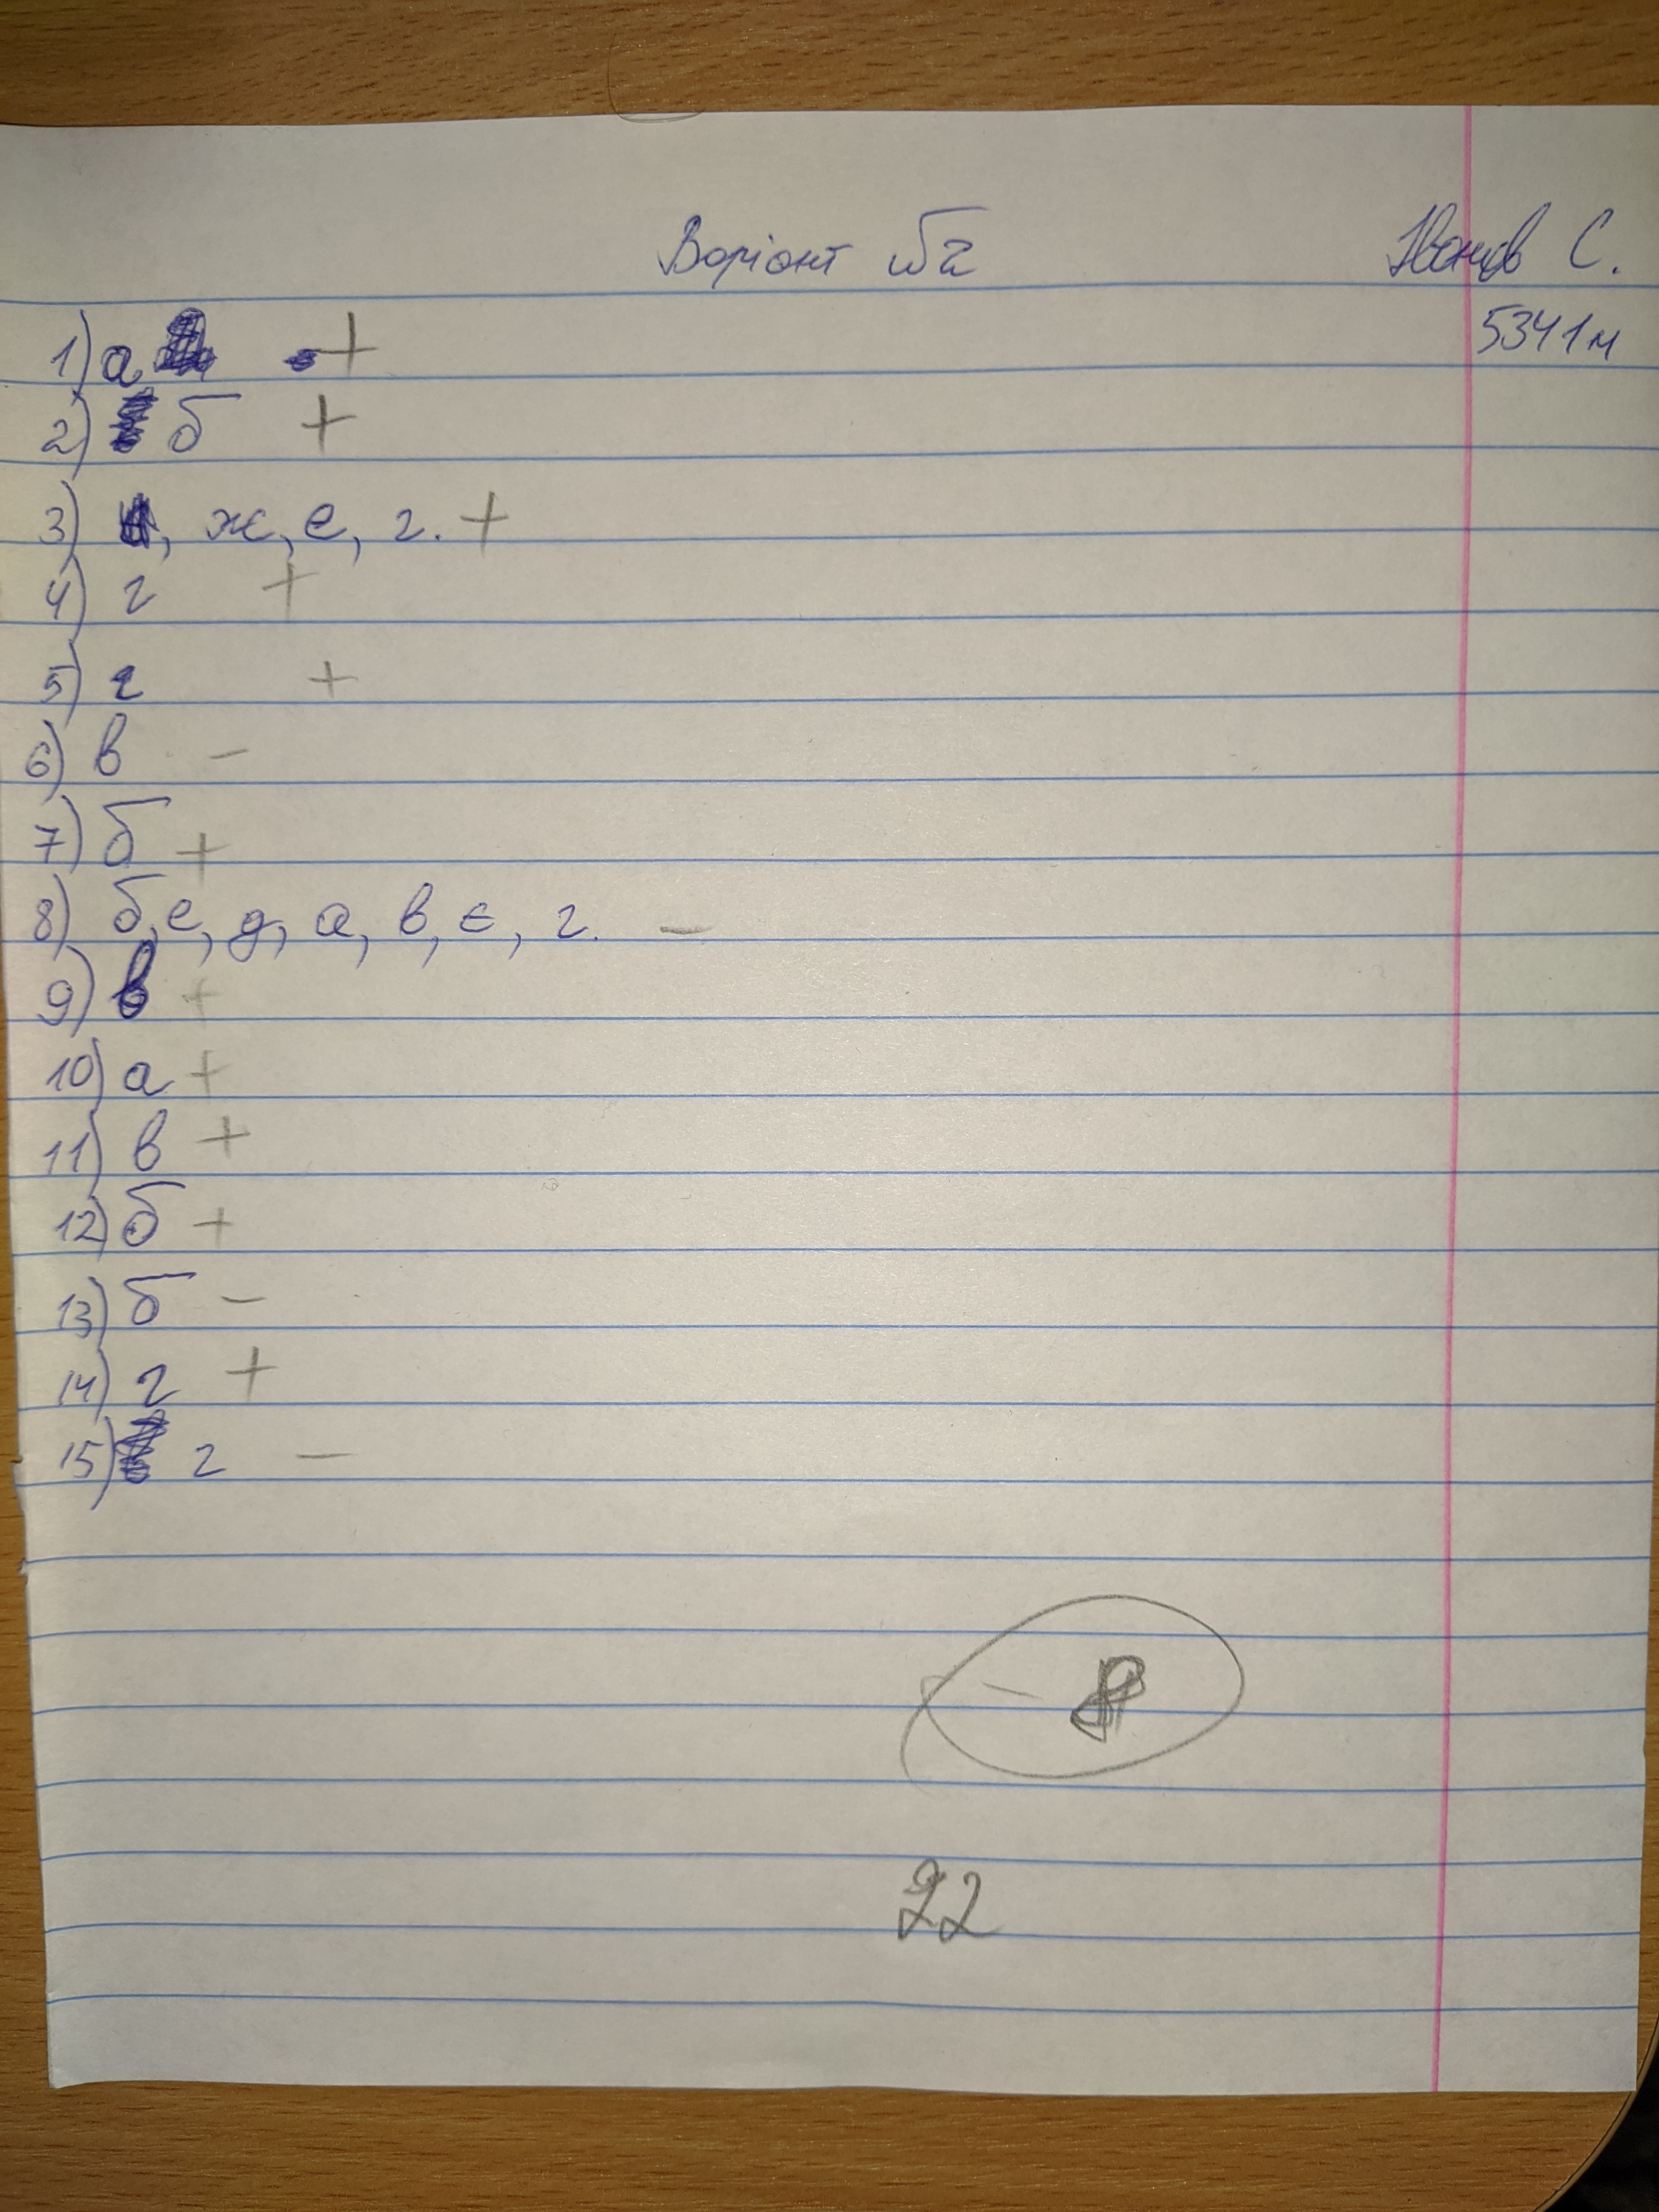 Варіант №2
Іванов С.
5341м
1) а +
2) б +
3) , ж, е, г. +
4) г +
5) г +
6) в -
7) б +
8) б, е, д, а, в, є, г. -
9) в +
10) а +
11) в +
12) б +
13) б -
14) г +
15) г -
22